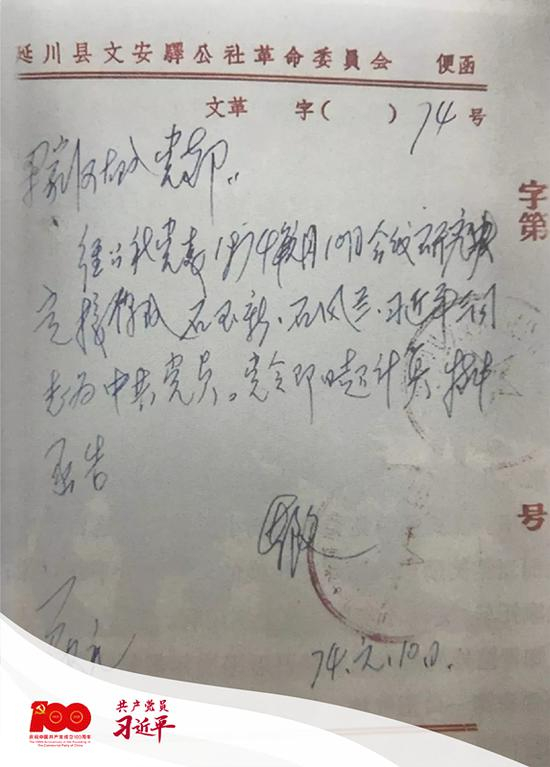 延川县文安驛公社革命委員会 便函
文革 字( ) 74 号
梁家河大队党部：
经公社党委1974年元月10日会议研究决
定接收 石玉新、石风兰、习近平
志为中共党员。党令即日起计算。特
函告
74.元.10日.
字第
号
100
庆祝中国共产党成立100周年
The 100th Anniversary of the Founding of
The Communist Party of China
共产党员
习近平